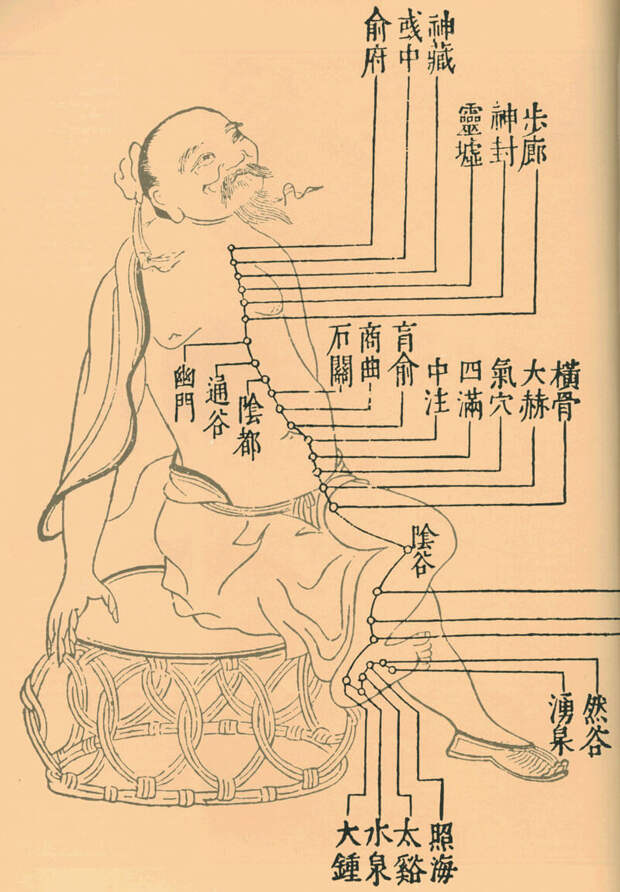 神藏
彧中
俞府
步廊
神封
靈墟
肓俞
商曲
石關
橫骨
大赫
氣穴
四滿
中注
陰都
通谷
幽門
陰谷
然谷
湧泉
照海
太谿
水泉
大鍾